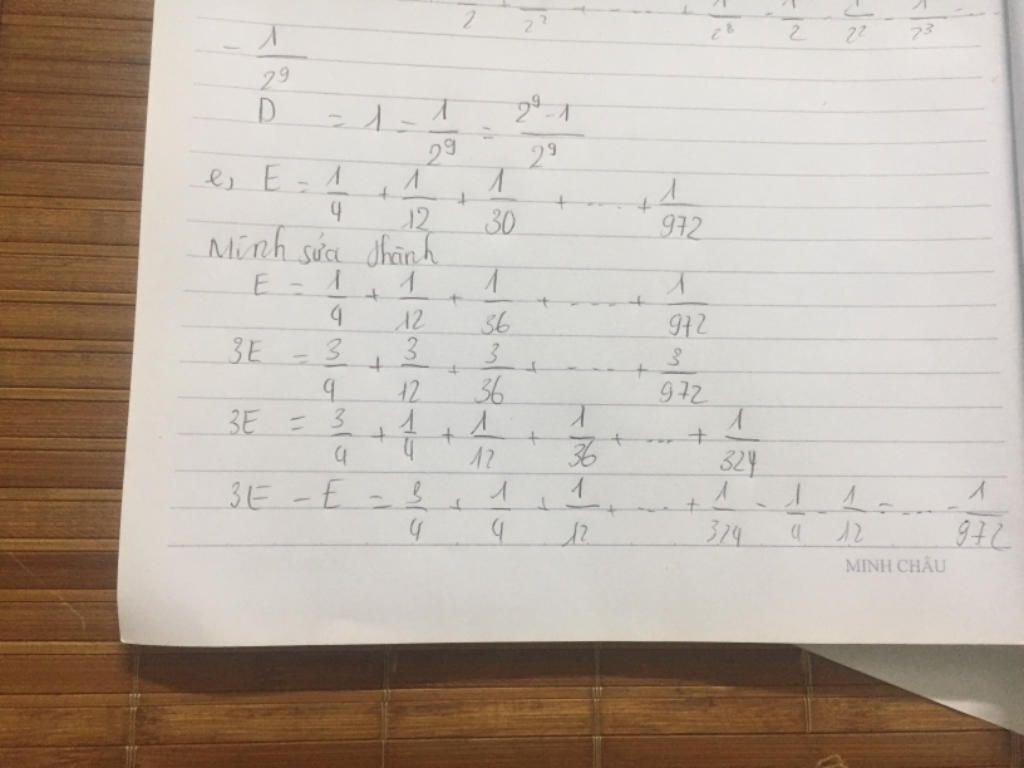 1/2 + 1/2² + ..... + 1/2⁸ - 1/2 - 1/2² - 1/2³ - ...
- 1/2⁹
D = 1 - 1/2⁹ = 2⁹-1/2⁹
e, E = 1/4 + 1/12 + 1/30 + ..... + 1/972
Mình sửa thành
E = 1/4 + 1/12 + 1/36 + ..... + 1/972
3E = 3/4 + 3/12 + 3/36 + ..... + 3/972
3E = 3/4 + 1/4 + 1/12 + 1/36 + .... + 1/324
3E - E = 3/4 + 1/4 + 1/12 + .... + 1/324 - 1/4 - 1/12 - .... - 1/972
MINH CHÂU